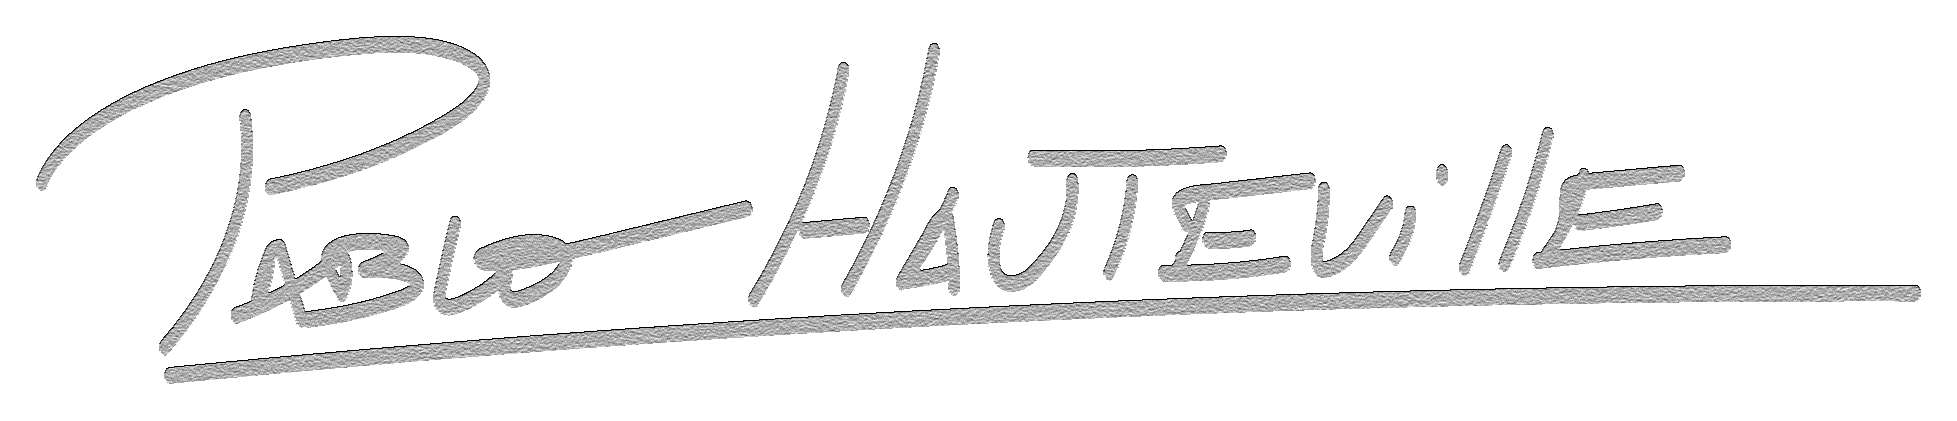 PABLO HAUTEVillE